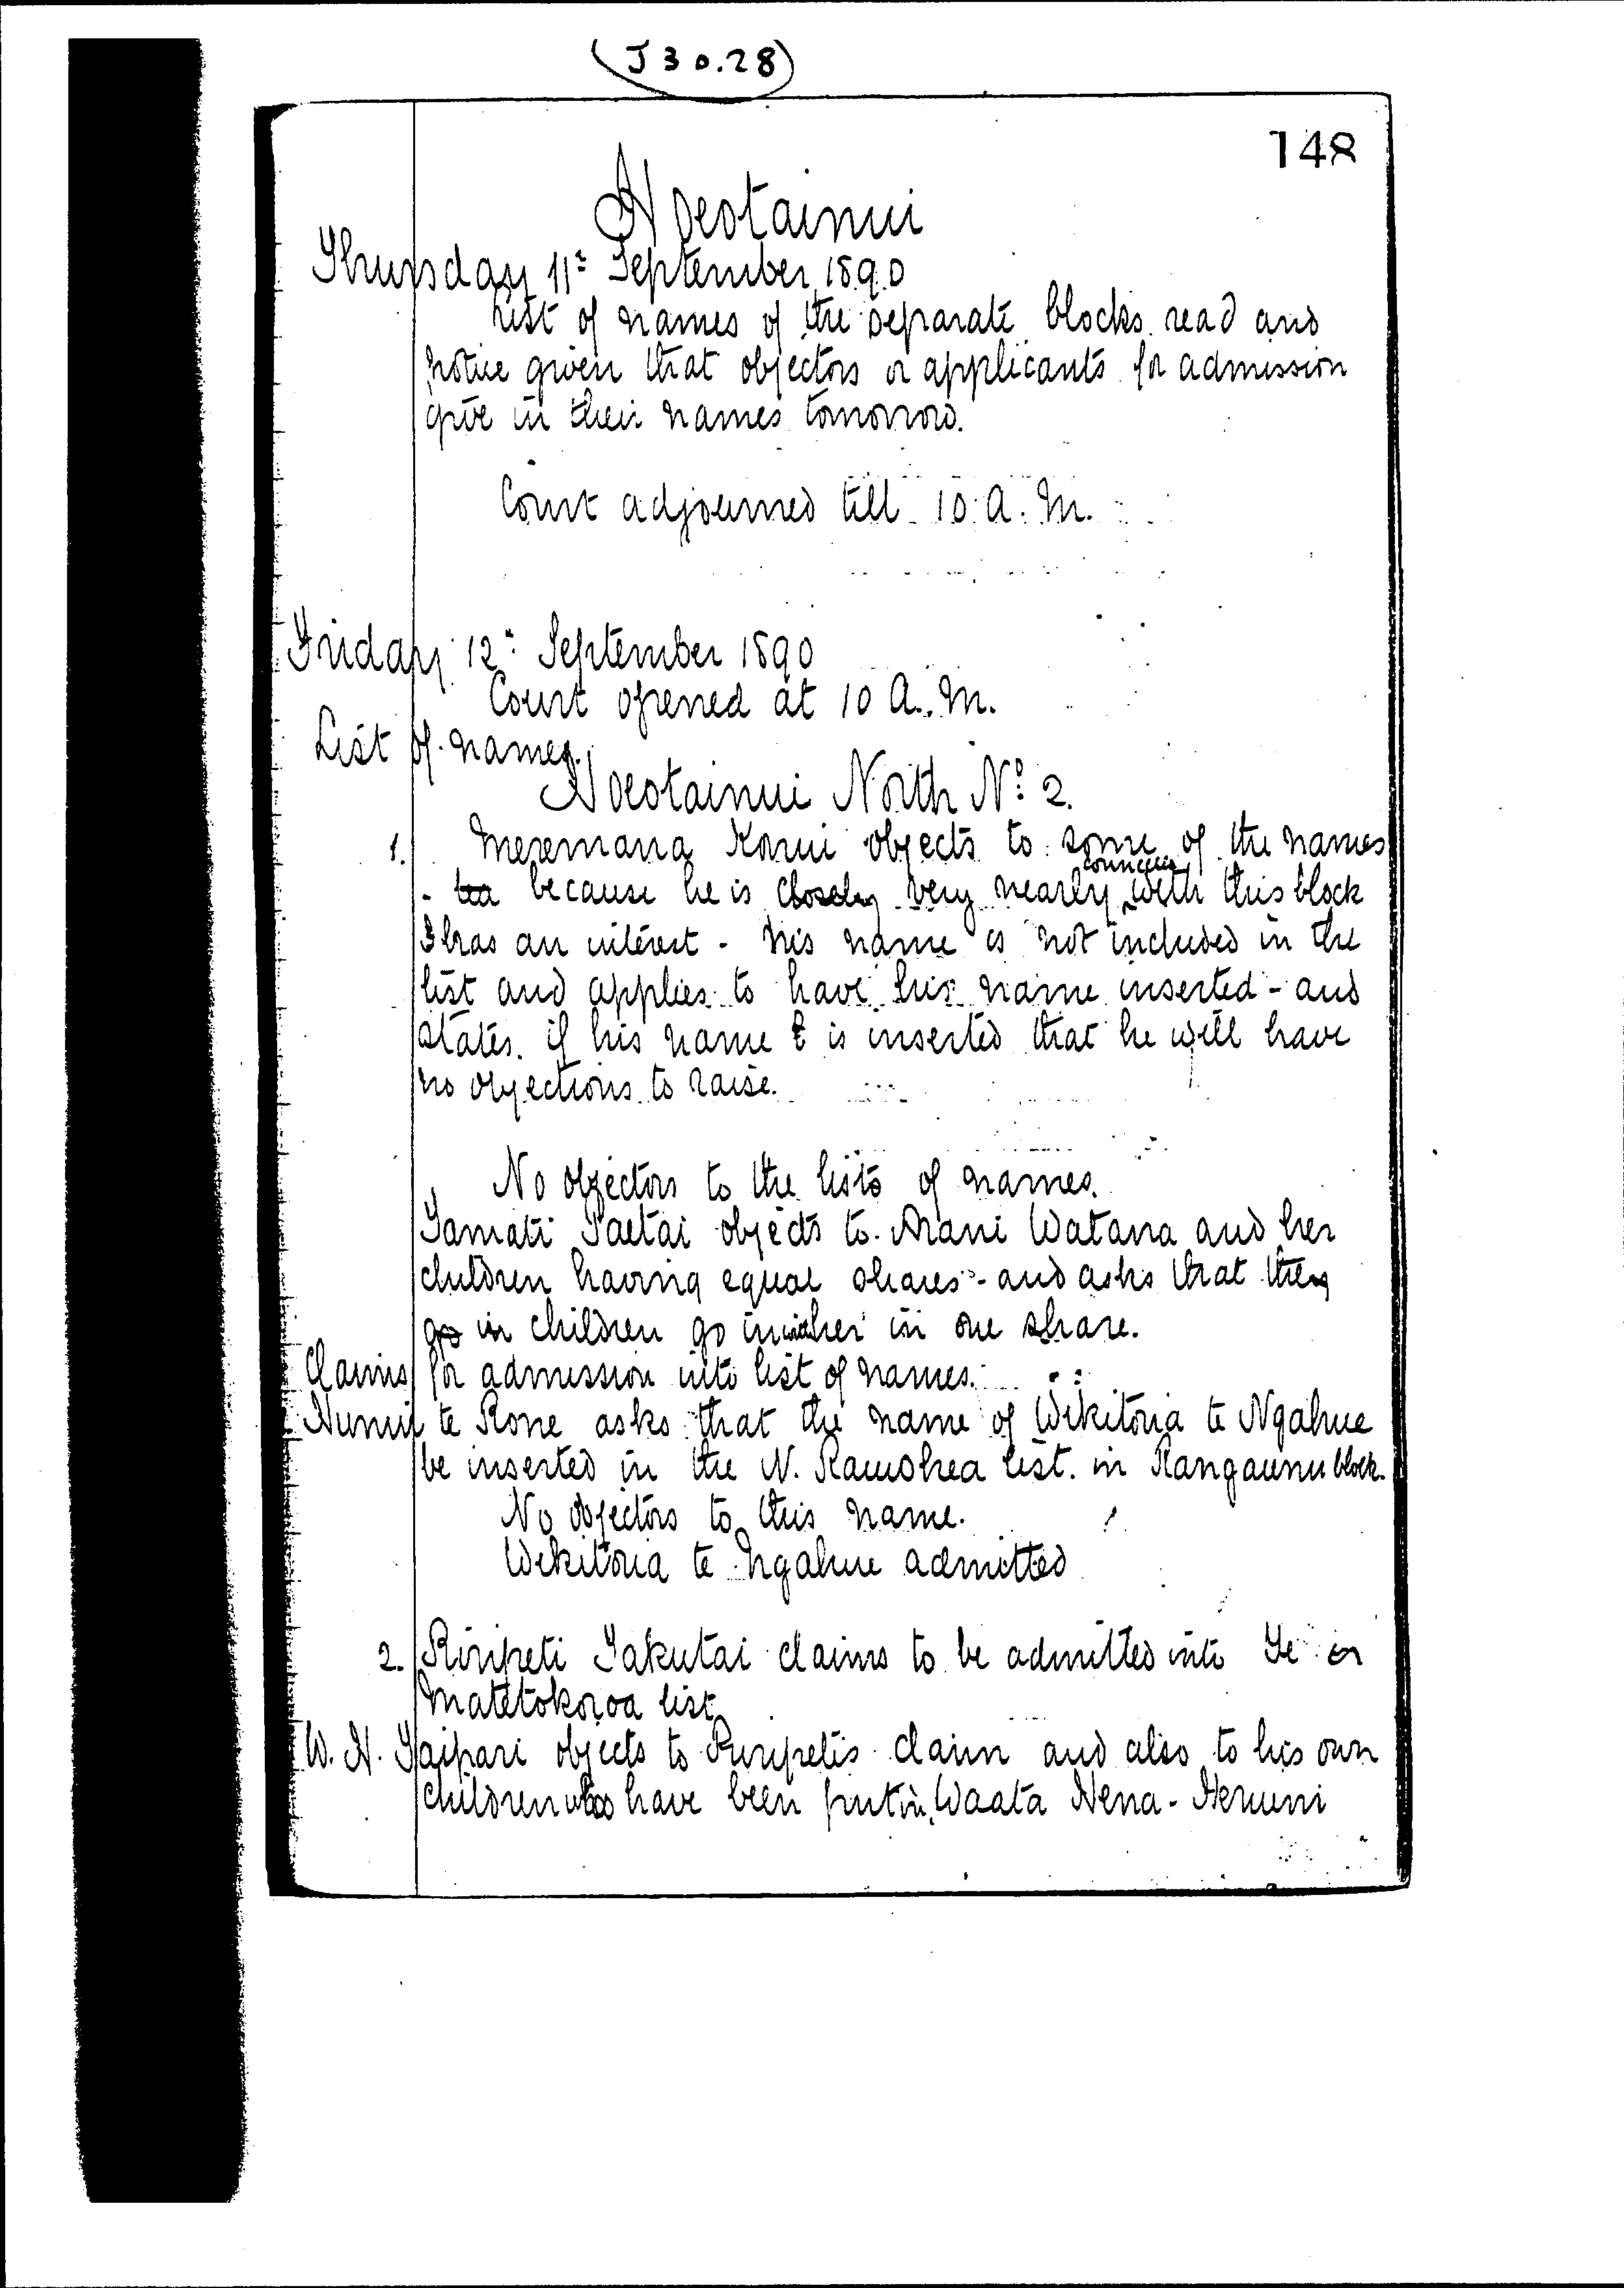 (J 30.28)
148
Hoeotainui
Thursday 11: September 1890
List of names of the separate blocks read and
notice given that objectors or applicants for admission
give in their names tomorrow.
Court adjourned till 10 A.M.
Friday 12: September 1890
Court opened at 10 A.M.
List of names.
Hoeotainui North No: 2.
1. Meremana Konui objects to some of the names
because he is closely very nearly connected with this block
& has an interest - his name is not included in the
list and applies to have his name inserted - and
states. if his name is inserted that he will have
no objections to raise.
No objectors to the lists of names.
Tamati Paetai objects to Mani Watana and her
children having equal shares - and asks that they
go in children go in with her in one share.
Claims for admission into list of names.
te Rone asks that the name of Wikitoria te Ngahue
be inserted in the N. Raukohea list. in Rangaunu block.
No objectors to this name.
Wikitoria te Ngahue admitted
2. Riripeti Takutai claims to be admitted into Te
Matetokoroa list
W. H. Taipari objects to Riripetis claim and also to his own
children who have been put in, Waata Hena - Heruini